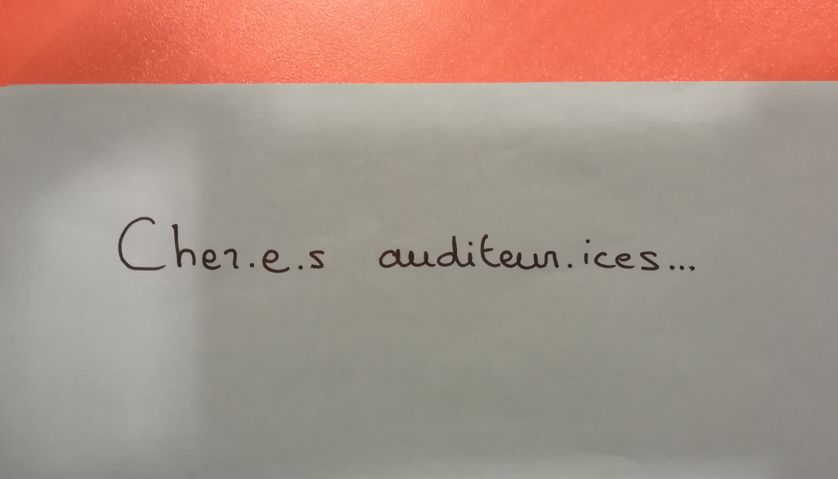 Cher.e.s auditeur.ices...